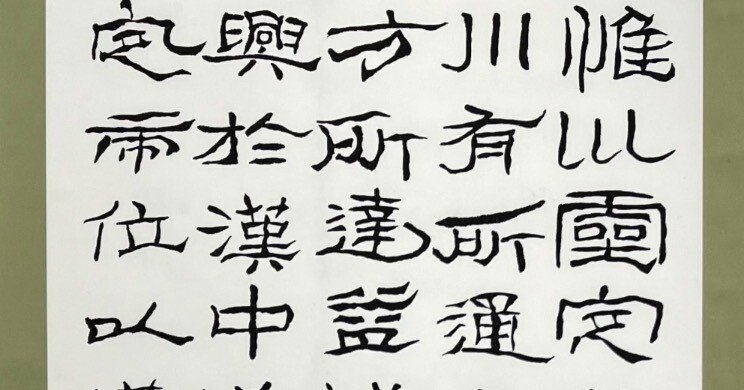 惟巛靈定
川有所通
方所達益
興於漢中
定帝位以